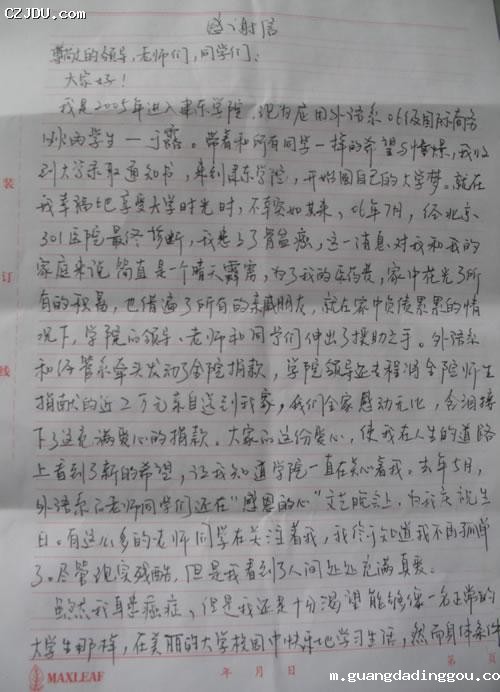 CZJDU.COM
感谢信
尊敬的领导、老师们、同学们：
大家好！
我是2005年进入肇东学院，现为应用外语系06级国际商务
班的学生一于露。带着和所有同学一样的希望与憧憬，我收
到大学录取通知书，来到肇东学院，开始圆自己的大学梦。就在
我幸福地享受大学时光时，不幸突如其来，06年7月，经北京
301医院最终诊断，我患了骨盆癌，这一消息对我和我的
家庭来说简直是一个晴天霹雳，为了我的医药费，家中花光了所
有的积蓄，也借遍了所有的亲戚朋友，就在家中负债累累的情
况下，学院的领导、老师和同学们伸出了援助之手。外语系
和经管系牵头发动了全院捐款，学院领导还专程将全院师生
捐献的近2万元亲自送到我家，我们全家感动无比，含泪接
下了这充满爱心的捐款。大家的这份爱心，使我在人生的道路
上看到了新的希望，让我知道学院一直在关心着我。去年5月，
外语系的老师同学们还在“感恩的心”文艺晚会上，为我庆祝生
日。有这么多的老师同学在关注着我，我终于知道我不再孤单
了。尽管现实残酷，但是我看到了人间处处充满真爱。
虽然我身患癌症，但是我还是十分渴望能够像一名正常的
大学生那样，在美丽的大学校园中快乐地学习生活，然而身体条件
装
订
线
MAXLEAF
年 月 日
第 页
m.guangdadinggou.com